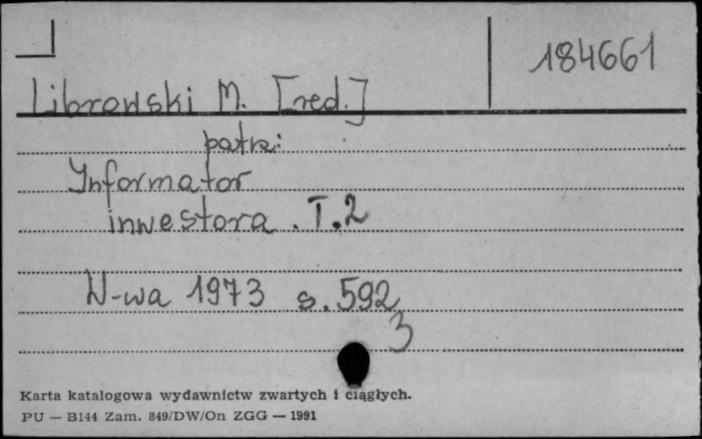 184661
Librowski M. [red.]
patrz:
Informator
inwestora. T.2
W-wa 1973 s. 592
3
Karta katalogowa wydawnictw zwartych i ciągłych.
PU — B144 Zam. 849/DW/On ZGG — 1991